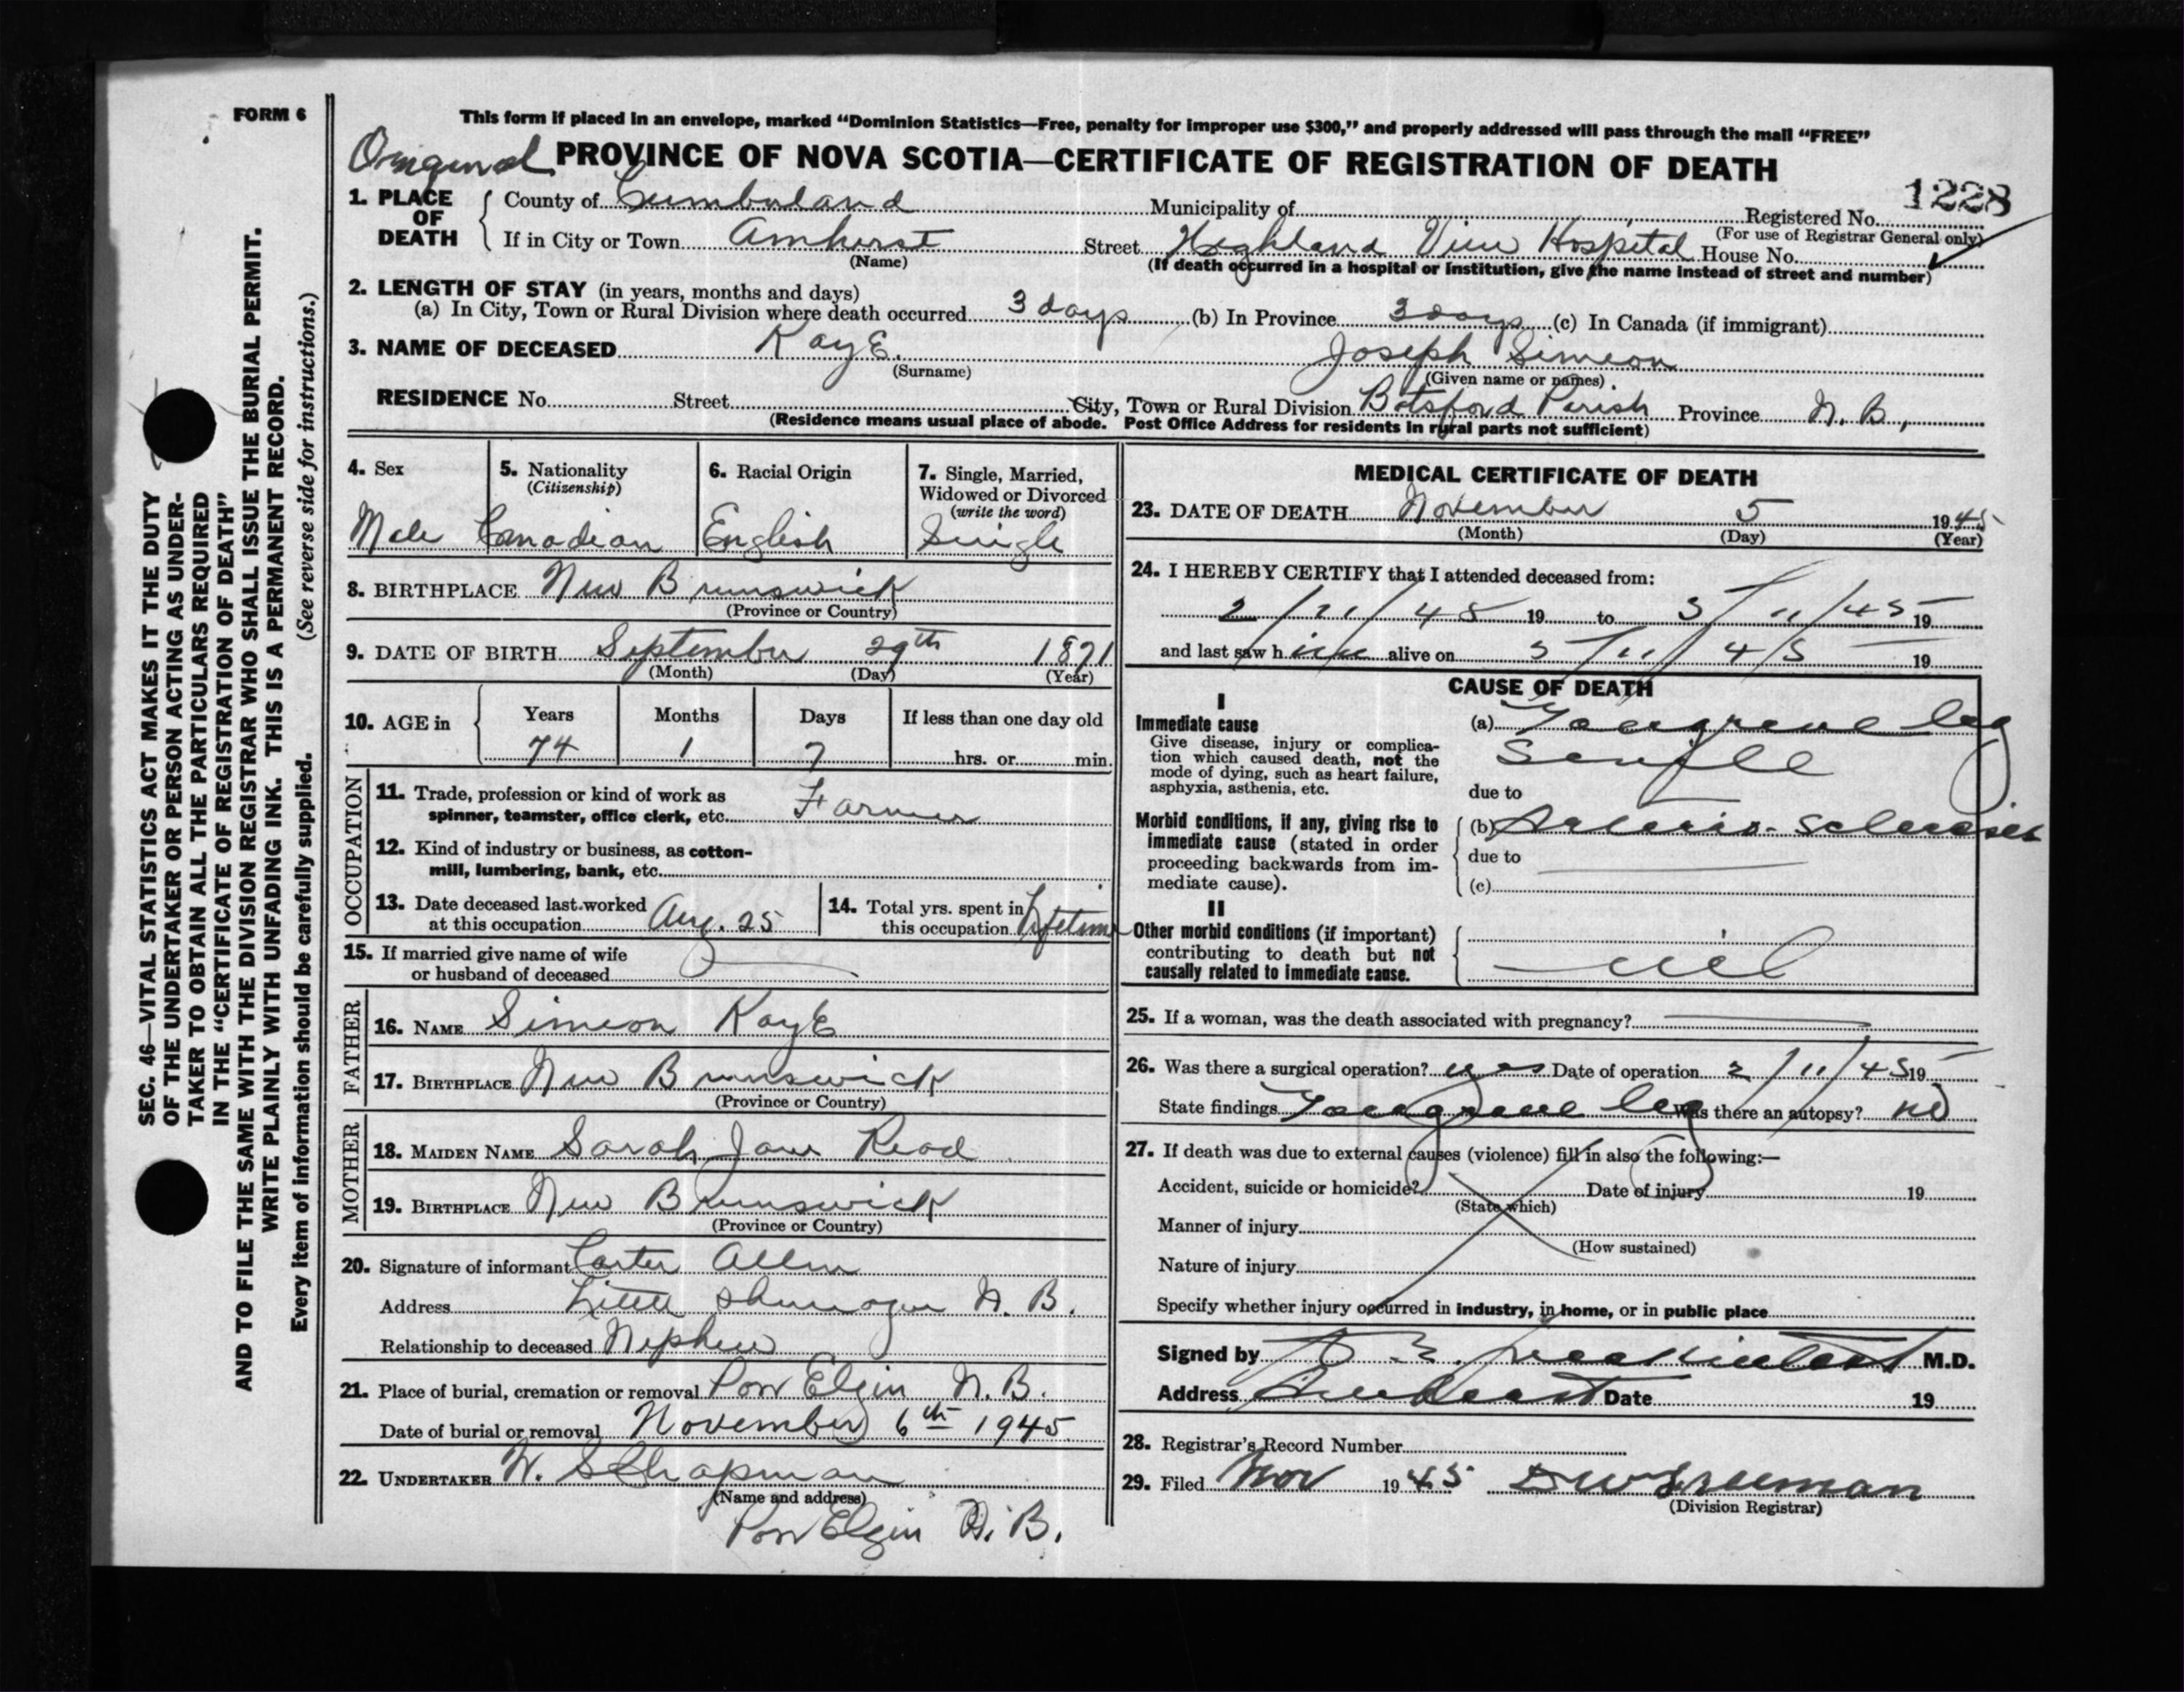 FORM 6
This form if placed in an envelope, marked "Dominion Statistics—Free, penalty for improper use $300," and properly addressed will pass through the mail "FREE"
Original PROVINCE OF NOVA SCOTIA—CERTIFICATE OF REGISTRATION OF DEATH
1228
1. PLACE OF DEATH County of Cumberland Municipality of Registered No.
(For use of Registrar General only)
If in City or Town Amherst Street Highland View Hospital House No.
(Name) (If death occurred in a hospital or institution, give the name instead of street and number)
2. LENGTH OF STAY (in years, months and days)
(a) In City, Town or Rural Division where death occurred 3 days (b) In Province 3 days (c) In Canada (if immigrant)
3. NAME OF DECEASED KayE. Joseph Simeon
(Surname) (Given name or names)
RESIDENCE No. Street City, Town or Rural Division Botsford Parish Province N. B.,
(Residence means usual place of abode. Post Office Address for residents in rural parts not sufficient)
4. Sex 5. Nationality (Citizenship) 6. Racial Origin 7. Single, Married, Widowed or Divorced (write the word)
Male Canadian English Single
8. BIRTHPLACE New Brunswick
(Province or Country)
9. DATE OF BIRTH September 29th 1871
(Month) (Day) (Year)
10. AGE in Years Months Days If less than one day old
74 1 7 hrs. or min.
OCCUPATION
11. Trade, profession or kind of work as
spinner, teamster, office clerk, etc. Farmer
12. Kind of industry or business, as cotton-
mill, lumbering, bank, etc.
13. Date deceased last worked
at this occupation Aug. 25
14. Total yrs. spent in
this occupation Lifetime
15. If married give name of wife
or husband of deceased
FATHER
16. NAME Simeon KayE
17. BIRTHPLACE New Brunswick
(Province or Country)
MOTHER
18. MAIDEN NAME Sarah Jane Read
19. BIRTHPLACE New Brunswick
(Province or Country)
20. Signature of informant Carter Allen
Address Little Shemogue N. B.
Relationship to deceased Nephew
21. Place of burial, cremation or removal Port Elgin N. B.
Date of burial or removal November 6th 1945
22. UNDERTAKER W. S Chapman
(Name and address)
Port Elgin N. B.
MEDICAL CERTIFICATE OF DEATH
23. DATE OF DEATH November 5 1945
(Month) (Day) (Year)
24. I HEREBY CERTIFY that I attended deceased from:
2/11/45 19 to 5/11/45 19
and last saw him alive on 5/11/45 19
CAUSE OF DEATH
I
Immediate cause
Give disease, injury or complica-
tion which caused death, not the
mode of dying, such as heart failure,
asphyxia, asthenia, etc.
(a) Gangrene leg
Senile
due to
Morbid conditions, if any, giving rise to
immediate cause (stated in order
proceeding backwards from im-
mediate cause).
(b) Arterio-sclerosis
due to
(c)
II
Other morbid conditions (if important)
contributing to death but not
causally related to immediate cause.
nil
25. If a woman, was the death associated with pregnancy?
26. Was there a surgical operation? yes Date of operation 2/11/45 19
State findings Gangrene leg Was there an autopsy? no
27. If death was due to external causes (violence) fill in also the following:—
Accident, suicide or homicide? Date of injury 19
(State which)
Manner of injury
(How sustained)
Nature of injury
Specify whether injury occurred in industry, in home, or in public place
Signed by M.D.
Address Amherst Date 19
28. Registrar's Record Number
29. Filed Nov 1945
(Division Registrar)
SEC. 46—VITAL STATISTICS ACT MAKES IT THE DUTY
OF THE UNDERTAKER OR PERSON ACTING AS UNDER-
TAKER TO OBTAIN ALL THE PARTICULARS REQUIRED
IN THE "CERTIFICATE OF REGISTRATION OF DEATH"
AND TO FILE THE SAME WITH THE DIVISION REGISTRAR WHO SHALL ISSUE THE BURIAL PERMIT.
WRITE PLAINLY WITH UNFADING INK. THIS IS A PERMANENT RECORD.
Every item of information should be carefully supplied. (See reverse side for instructions.)